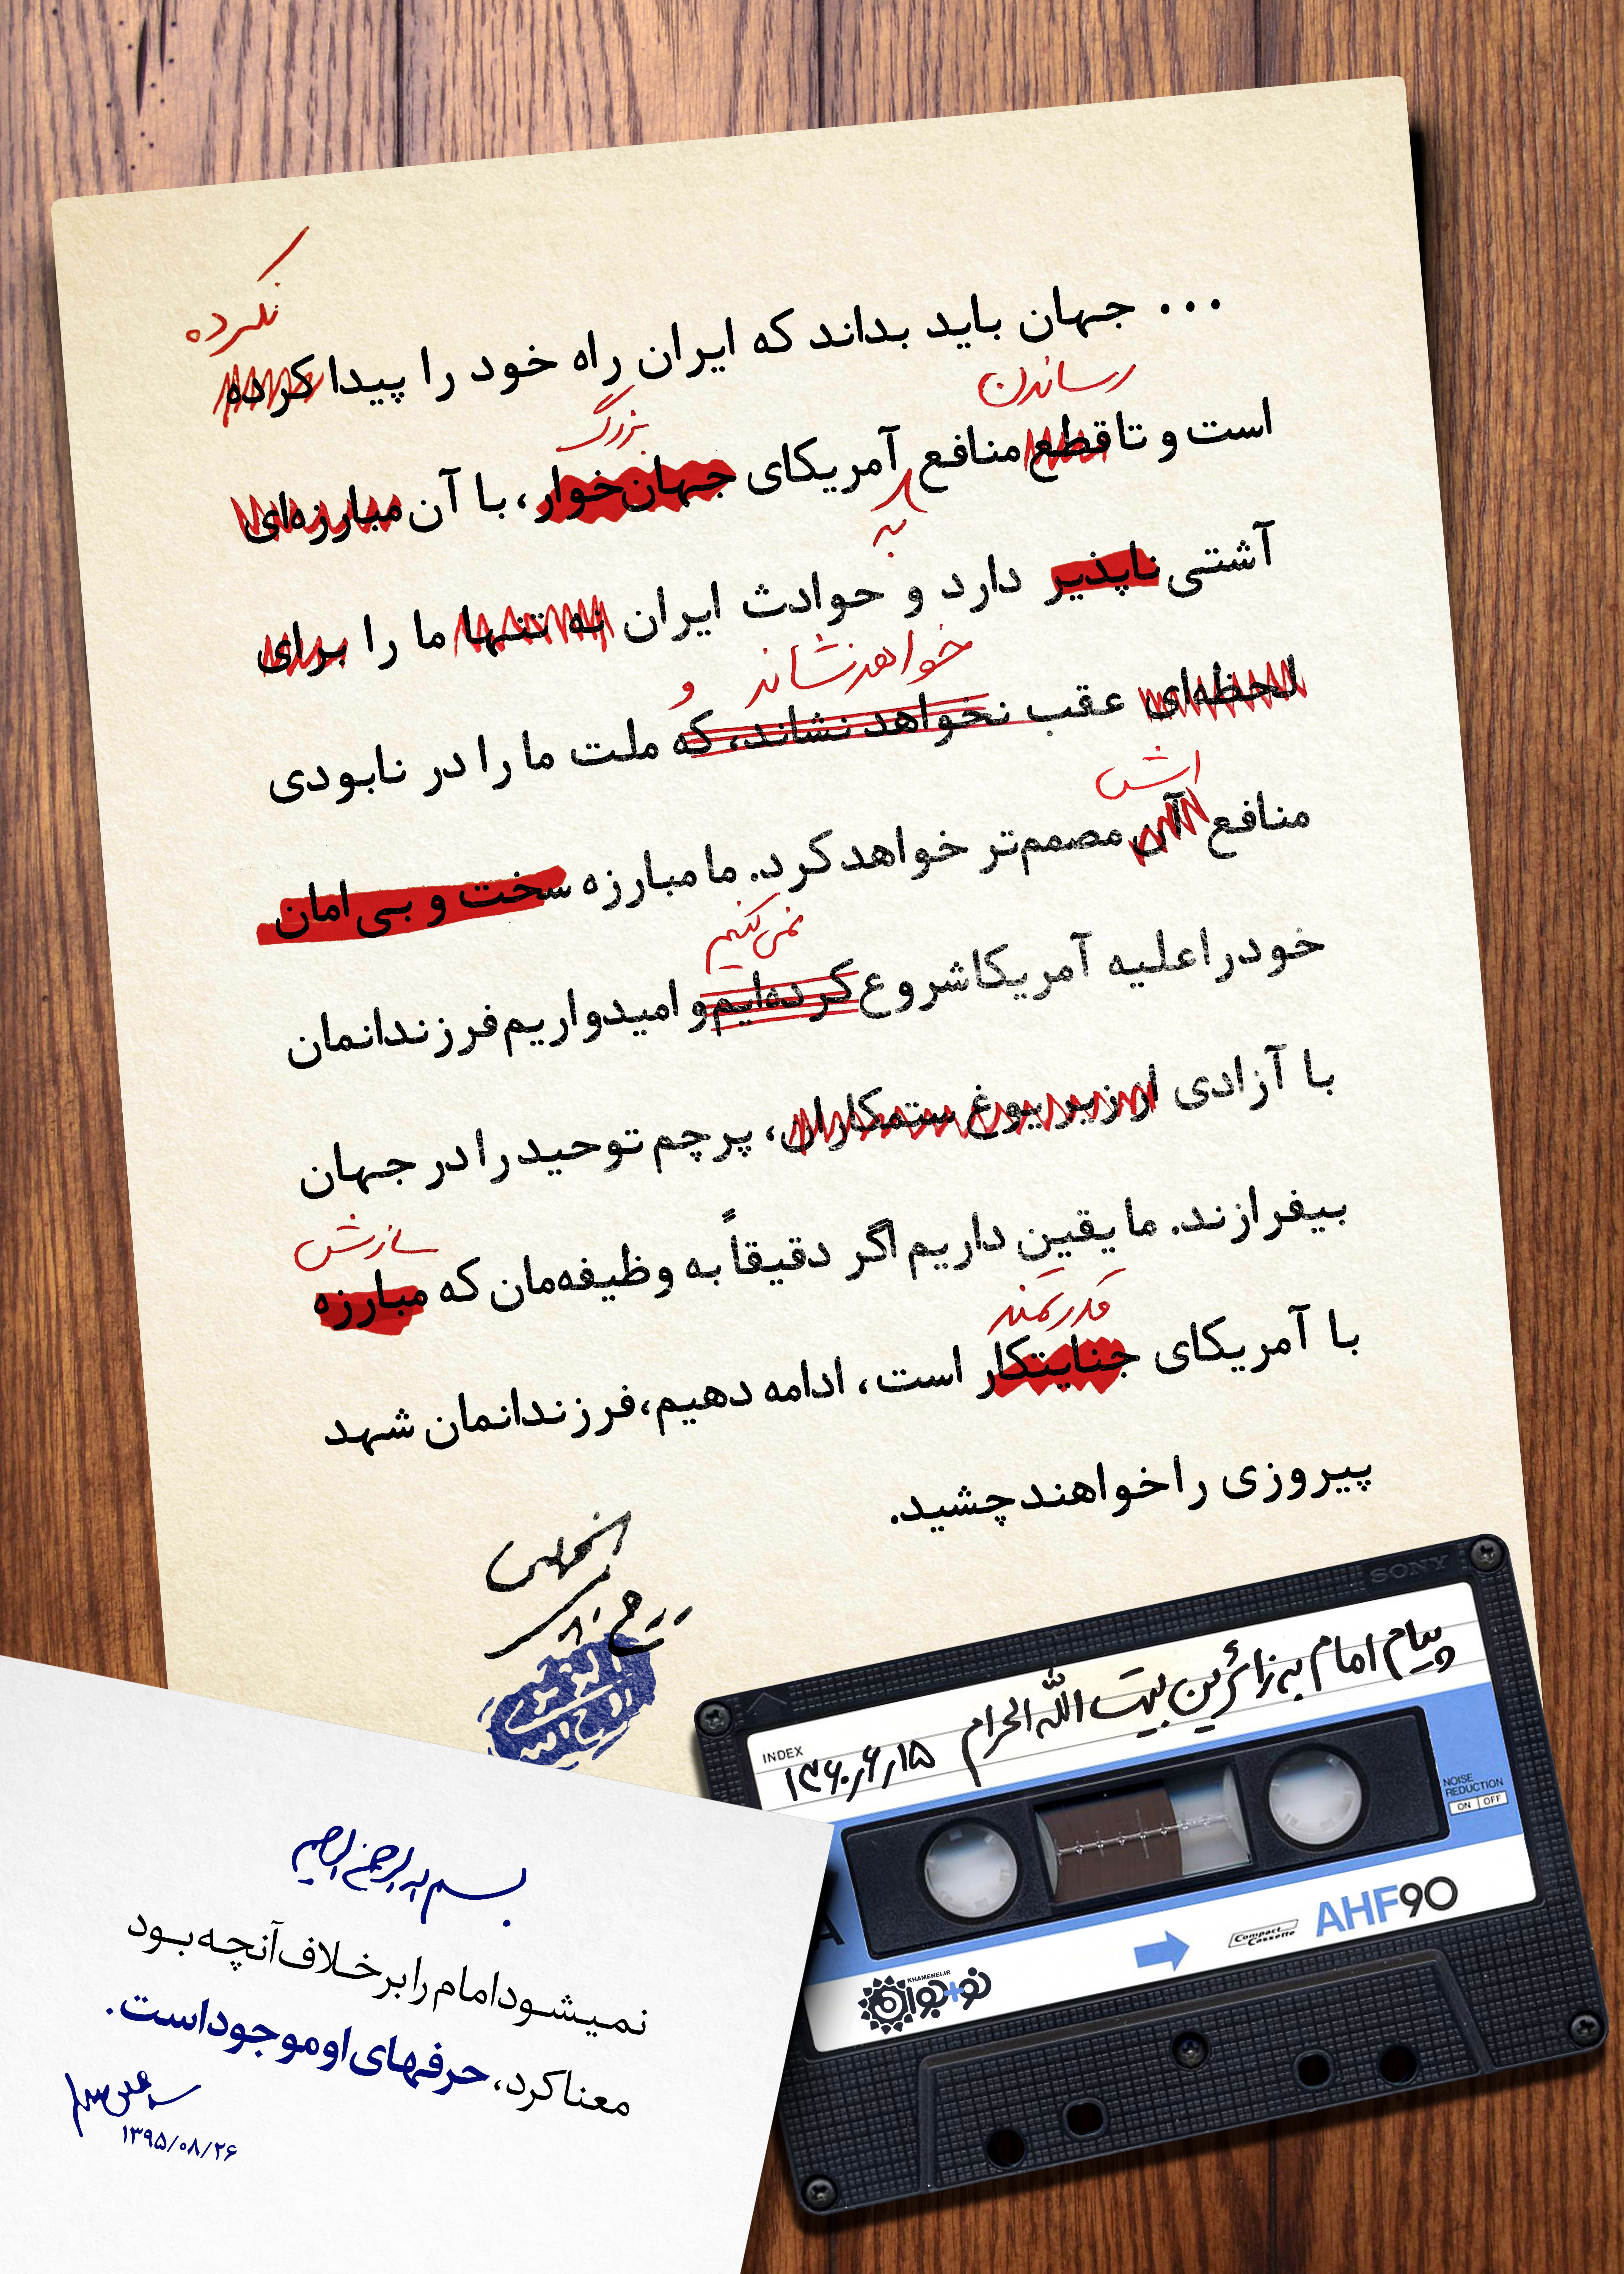 نکرده
... جهان باید بداند که ایران راه خود را پیدا کرده
رساندن
بزرگ
است و تا قطع منافع آمریکای جهان‌خوار، با آن مبارزه‌ای
به
آشتی ناپذیر دارد و حوادث ایران نه تنها ما را برای
خواهد نشاند و
لحظه‌ای عقب نخواهد نشاند، که ملت ما را در نابودی
اش
منافع آن مصمم‌تر خواهد کرد. ما مبارزه سخت و بی‌امان
نمی‌کنیم
خود را علیه آمریکا شروع کرده‌ایم و امیدواریم فرزندانمان
با آزادی از زیر یوغ ستمکاران، پرچم توحید را در جهان
سازش
بیفرازند. ما یقین داریم اگر دقیقاً به وظیفه‌مان که مبارزه
قدرتمند
با آمریکای جنایتکار است، ادامه دهیم، فرزندانمان شهد
پیروزی را خواهند چشید.
SONY
پیام امام به زائرین بیت الله الحرام
INDEX
۱۳۶۰٫۶٫۱۵
NOISE
REDUCTION
ON OFF
A
AHF90
Compact
Cassette
KHAMENEI.IR
نو+جوان
بسم الله الرحمن الرحیم
نمیشود امام را برخلاف آنچه بود
معنا کرد، حرفهای او موجود است.
۱۳۹۵/۰۸/۲۶